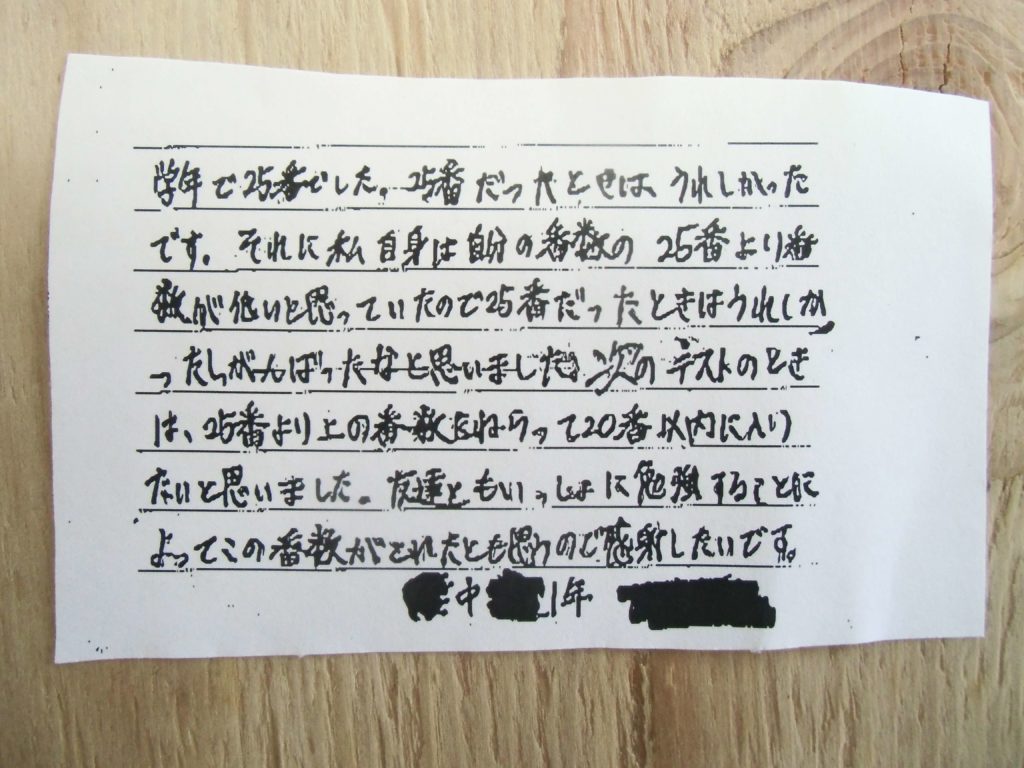 学年で25番でした。25番だったときは、うれしかった
です。それに私自身は自分の番数の25番より番
数が低いと思っていたので25番だったときはうれしか
ったしがんばったなと思いました。次のテストのとき
は、25番より上の番数をねらって20番以内に入り
たいと思いました。友達ともいっしょに勉強することに
よってこの番数がとれたとも思うので感射したいです。
中 1年